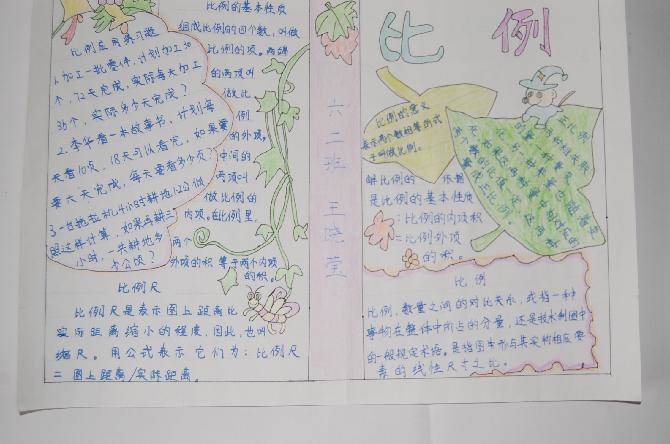 比例的基本性质
组成比例的四个数，叫做
比例的项。两端
的两项叫
做比
例
的外项。
中间的
两项叫
做比例的
内项。在比例里，
两个
外项的积 等于两个内项
的积。
比例应用练习题
1.加工一批零件，计划每天加工30
个，12天完成，实际每天加工
36个，实际多少天完成？
2.李华看一本故事书，计划每
天看10页，18天可以看完，如果要
6天完成，每天要看多少页？
3.一台拖拉机4小时耕地12公顷
照这样计算，如果再耕三
小时，一共耕地多
少公顷？
比例尺
比例尺是表示图上距离比
实际距离缩小的程度，因此，也叫
缩尺。用公式表示它们为：比例尺
=图上距离/实际距离。
六二班 王晓莹
比例
比例的意义
表示两个数相等的式
子叫做比例。
解比例的 依据
是比例的基本性质
：比例的内项积
=比例外项
的积。
比例
比例，数量之间的对比关系，或指一种
事物在整体中所占的分量，还是技术制图中
的一般规定术语。是指图中形与其实物相应要
素的线性尺寸之比。